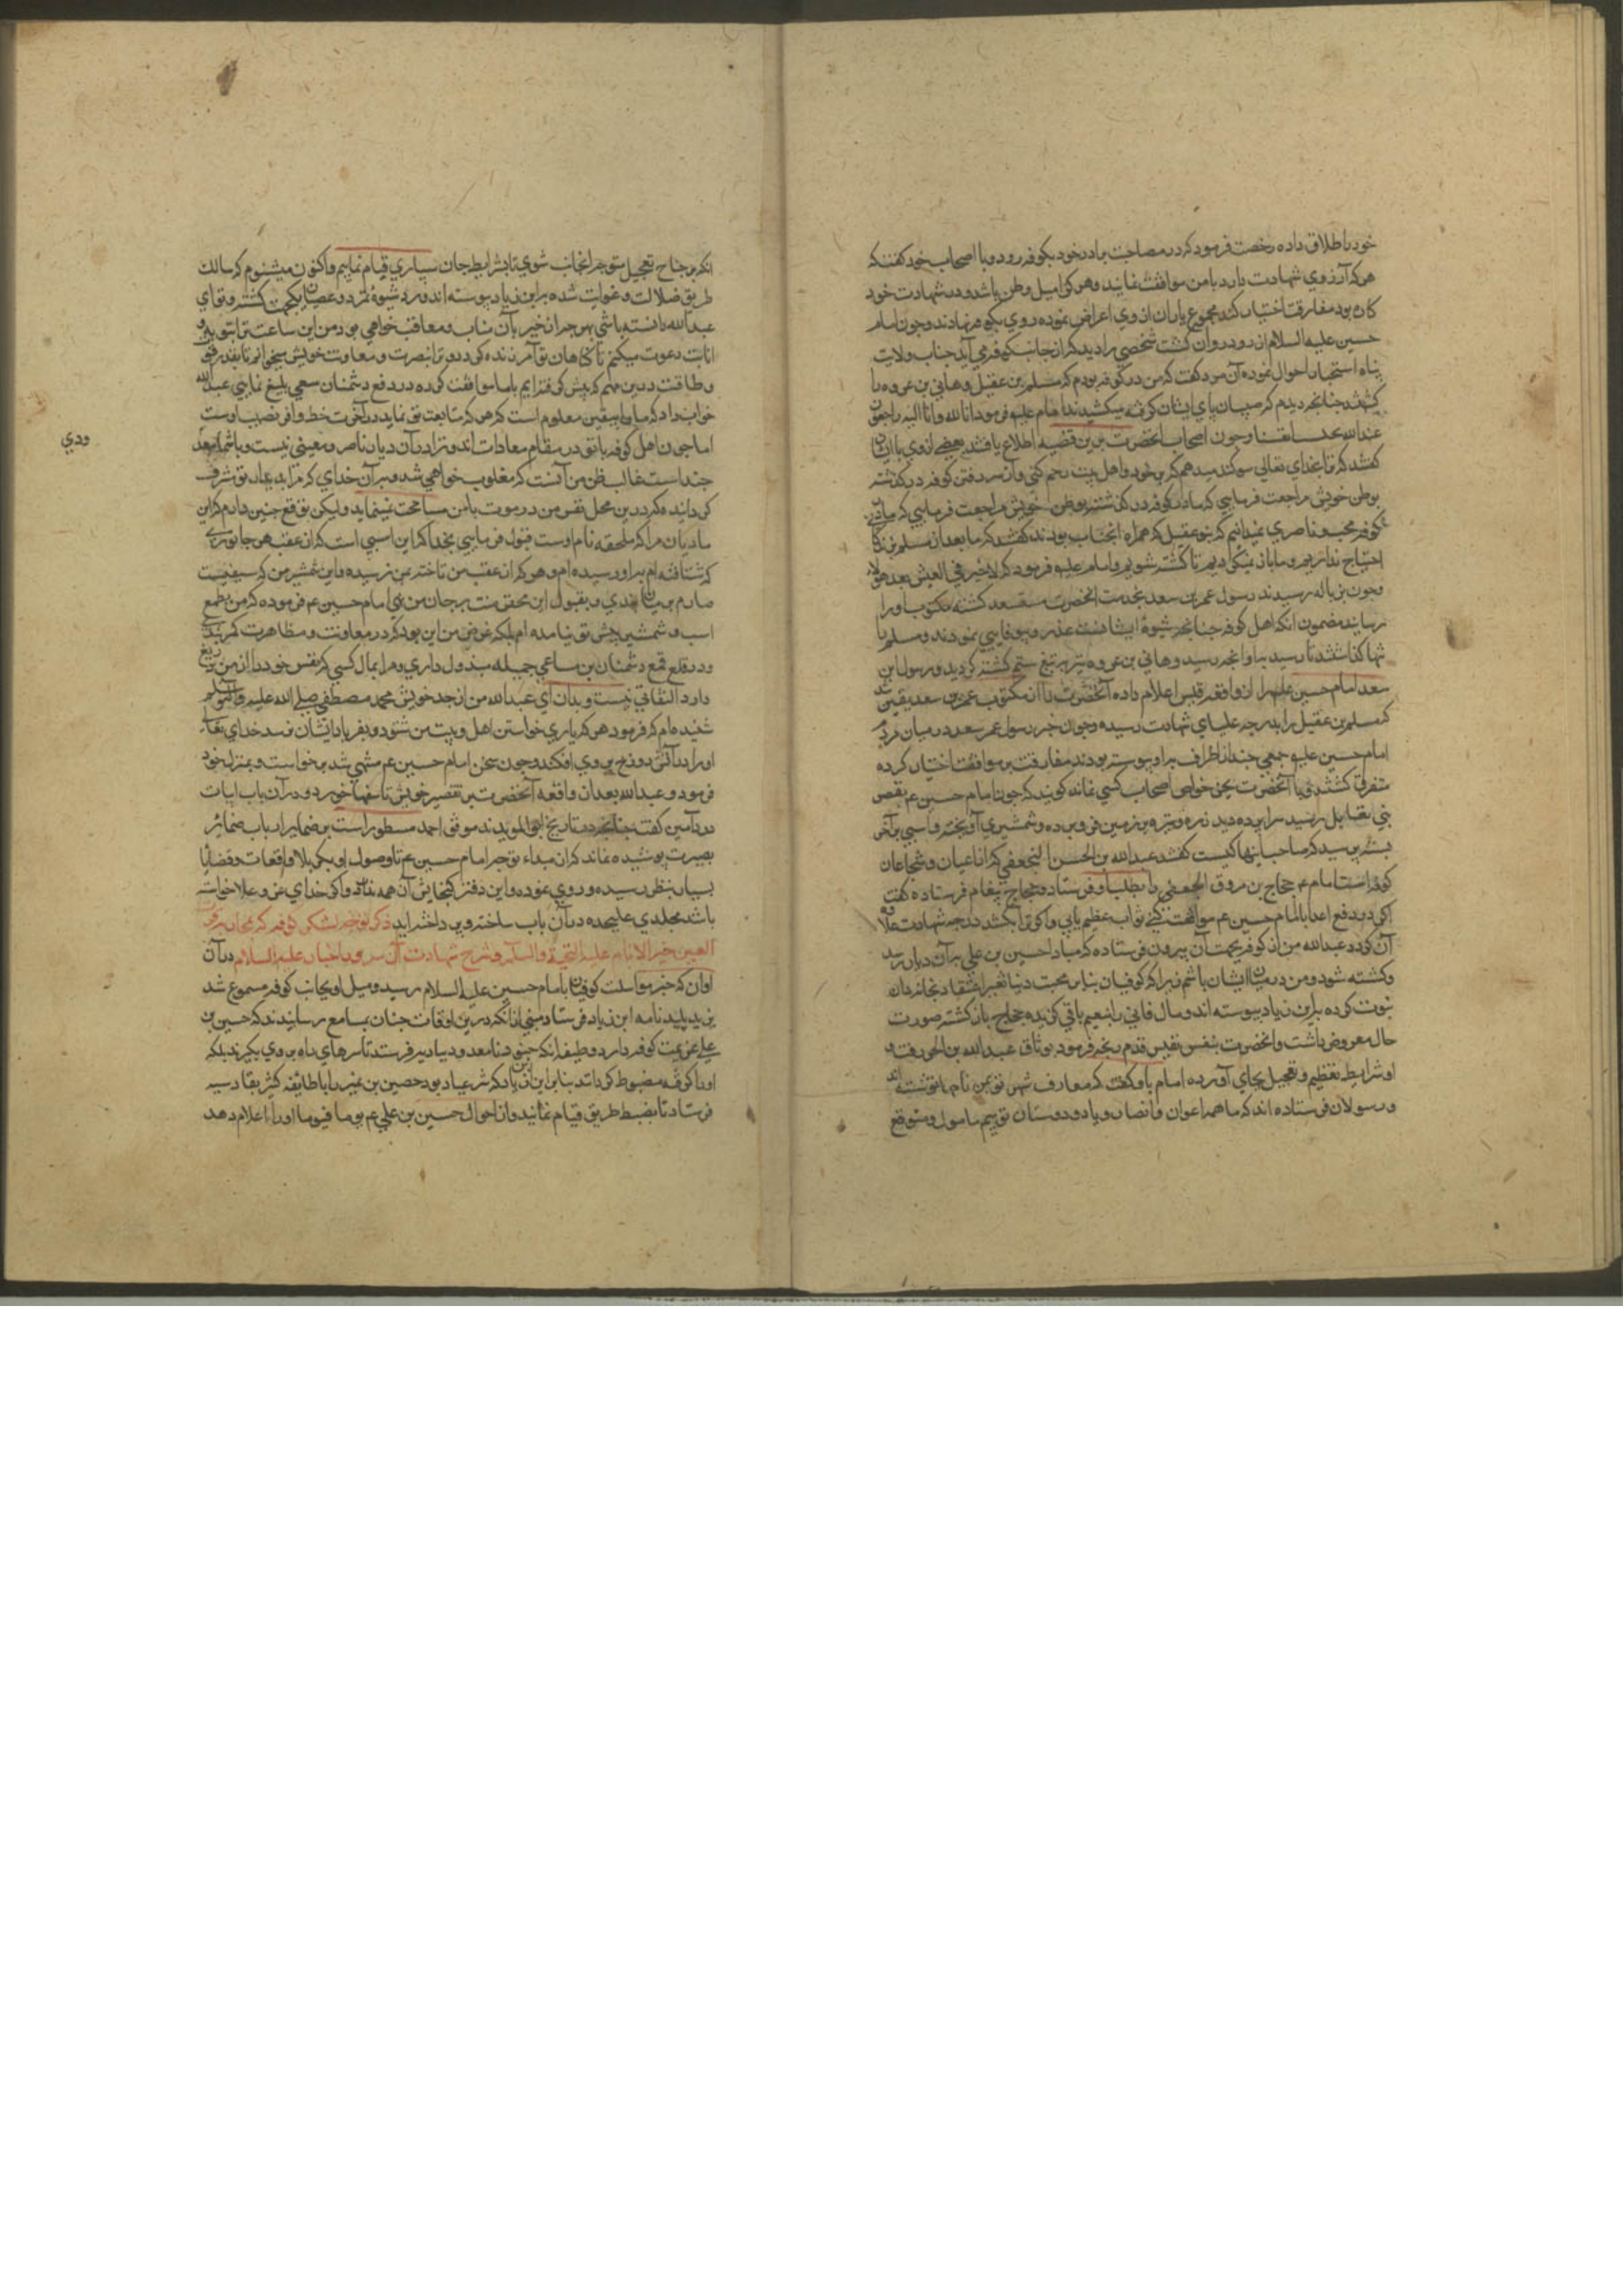 خود را طلاق داده رخصت فرمود که در مصاحبت برادر خود بکوفه رود و با اصحاب خود کفت که
هر که آرزوی شهادت دارد با من موافقت نمایند و هر کرا میل وطن باشد و در شهادت خود
کاره بود مفارقت اختیار کند مجموع یاران از وی اعراض نموده روی بکوفه نهادند و چون امام
حسین علیه السلام از رود روان کشت شخصی را دید که از جانب کوفه می آید جناب ولایت
پناه استخبار احوال نموده آن مرد کفت که من در کوفه بودم که مسلم بن عقیل و هانی بن عروه را
کشتند چنانچه دیدم که صبیان پای ایشان کرفته میکشیدند امام علیه فرمود انا لله و انا الیه راجعون
عند الله نحتسب انفسنا و چون اصحاب انحضرت برین قضیه اطلاع یافتند بعضی از وی با ایشان
کفتند که ترا بخدای تعالی سوکند میدهم که بر خود و اهل بیت رحم کنی و از سر رفتن کوفه در کذشته
بوطن خویش مراجعت فرمایی که ما در کوفه در کذشته بوطن خویش مراجعت فرمایی که ما در
کوفه محب و ناصری نمیدانیم که بنو عقیل که همراه انجناب بودند کفتند که ما بعد از مسلم بزندکانی
احتیاج نداریم و ما باز نمیکردیم تا کشته شویم و امام علیه فرمود که لا خیر فی العیش بعد هولاء
و چون بزباله رسیدند رسول عمر بن سعد بخدمت انحضرت مستسعد کشته مکتوب او را
رسانید مضمون انکه اهل کوفه چنانچه شیوه ایشانست غدر و بیوفایی نمودند و مسلم را
تنها کذاشتند تا رسید باو انچه رسید و هانی بن عروه نیز بتیغ ستم کشته کردید و رسول ابن
سعد امام حسین علیه را از واقعه قیس اعلام داده آنحضرت را از مکتوب عمر بن سعد یقین شد
که مسلم بن عقیل را بدرجه علیای شهادت رسیده و چون خبر رسول عمر سعد در میان مردم
امام حسین علیه جمعی چند از اطراف براو پیوسته بودند مفارقت بر موافقت اختیار کرده
متفرق کشتند و با آنحضرت بجز خواص اصحاب کسی نماند کویند که چون امام حسین عم بقصر
بنی مقاتل رسید سراپرده دید زده و نیزه بر زمین فرو برده و شمشیری آویخته و اسبی بر آخر
بسته پرسید که صاحب اینها کیست کفتند عبد الله بن الحسن الجعفی که از اعیان و شجاعان
کوفه است امام عم حجاج بن مروق الجعفی را بطلب او فرستاد و حجاج پیغام فرستاده کفت
اکر در دفع اعدا با امام حسین عم موافقت کنی ثواب عظیم یابی و اکر ترا بکشند درجه شهادت علاوه
آن کردد عبد الله من از کوفه بجهت آن بیرون فرستاده که مبادا حسین بن علی بر آن دیار رسد
و کشته شود و من در میان ایشان باشم زیرا که کوفیان بنا بر محبت دنیا تغیر اعتقاد بخاندان
نبوت کرده بابن زیاد پیوسته اند و مال فانی را بنعیم باقی کزیده حجاج باز کشته صورت
حال معروض داشت و انحضرت بنفس نفیس قدم رنجه فرموده بوثاق عبد الله بن الحر رفت و
او شرایط تعظیم و تبجیل بجای آورده امام باو کفت که معارف شهر تو بمن نامها نوشته اند
و رسولان فرستاده اند که ما همه اعوان و انصار و یار و دوستان توییم مامول و متوقع
انکه بر جناح تعجیل متوجه انجانب شوی تا بشرایط جان سپاری قیام نماییم و اکنون میشنوم که سالک
طریق ضلالت و غوایت شده بابن زیاد پیوسته اند و در شیوه تمرد و عصیان یکجهت کشته و تو ای
عبد الله دانسته باشی بهر چه از خیر با آن مثاب و معاقب خواهی بود من این ساعت ترا بتوبه و
انابت دعوت میکنم تا کناهان تو آمرزنده کردد و ترا بنصرت و معاونت خویش میخوانم تا بقدر وسع
و طاقت درین مهم که پیش کرفته ایم با ما موافقت کرده در دفع دشمنان سعی بلیغ نمایی عبد الله
جواب داد که مرا بیقین معلوم است که هر که متابعت تو نماید در آخرت حظ وافر نصیب اوست
اما چون اهل کوفه با تو در مقام معادات اند و ترا در آن دیار ناصر و معینی نیست و با شما معدودی
چند است غالب ظن من آنست که مغلوب خواهی شد و بر آن خدای که مرا بدیدار تو مشرف
کردانیده که درین محل نفس من در موت با من مسامحت نمینماید ولیکن توقع چنین دارم که این
مادیان مرا که ملحقه نام اوست قبول فرمایی بخدا که این اسبی است که از عقب هر جانوری
که شتافته ام براو رسیده ام و هر که از عقب من تاخته بمن نرسیده و این شمشیر من که سیفیست
صارم بر میان بندی و بقبول این محقر منت بر جان من نهی امام حسین عم فرموده که من بطمع
اسب و شمشیر پیش تو نیامده ام بلکه غرض من این بود که در معاونت و مظاهرت کمر بندی
و در قلع و قمع دشمنان من مساعی جمیله مبذول داری و مرا بمال کسی که نفس خود را از من دریغ
دارد التفاتی نیست و بدان ای عبد الله من از جد خویش محمد مصطفی صلی الله علیه و آله و سلم
شنیده ام که فرمود هر که یاری خواستن اهل بیت من شنود و بفریاد ایشان نرسد خدای تعالی
او را در آتش دوزخ بر وی افکند و چون سخن امام حسین عم منتهی شد برخواست و بمنزل خود
فرمود و عبد الله بعد از واقعه آنحضرت بر تقصیر خویش تاسفها خورد و در آن باب ابیات
درد آمین کفت چنانچه در تاریخ ابو الموید موفق احمد مسطور است بر ضمایر ارباب ضمائر
بصیرت پوشیده نماند که از مبداء توجه امام حسین عم تا وصول او بکربلا واقعات و قضایا
بسیار بنظر رسیده و روی نموده و این دفتر کنجایش آن همه ندارد و اکر خدای عز و علا خواسته
باشد مجلدی علیحده در آن باب ساخته و پرداخته اید ذکر توجه لشکر کوفه که بمحاربه قره
العین خیر الانام علیه التحیة والسلام و شرح شهادت آن سرور اخیار علیه السلام در آن
اوان که خبر مراسلت کوفیان بامام حسین علیه السلام رسید و میل او بجانب کوفه مسموع شد
یزید پلید نامه ابن زیاد فرستاد مبنی از انکه درین اوقات چنان بمسامع رسانیدند که حسین بن
علی عزیمت کوفه دارد وظیفه انکه جنود نامعدود بادیر فرستد تا سرهای راه بر وی بکیرند بلکه
او را کوفه مضبوط کردانند بنا بر این ابن زیاد که شر عباد بود حصین بن نمیر را با طایفه کثیر بقادسیه
فرستاد تا بضبط طریق قیام نمایند و از احوال حسین بن علی عم یوما فیوما او را اعلام دهد
ودی